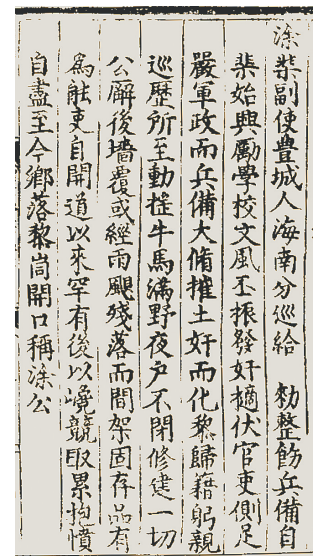 涂棐副使豊城人海南分巡給 勑整飭兵備自
棐始興勵學校文風丕振發奸摘伏官吏側足
嚴軍政而兵備大脩摧土奸而化黎歸籍躬親
巡歷所至動
牛馬滿野夜戸不閉修建一切
公廨後墻覆或經雨颶殘落而間架固存品有
為能吏自開道以來罕有後以嶢競取累抱憤
自盡至今鄉落黎峝開口稱涂公